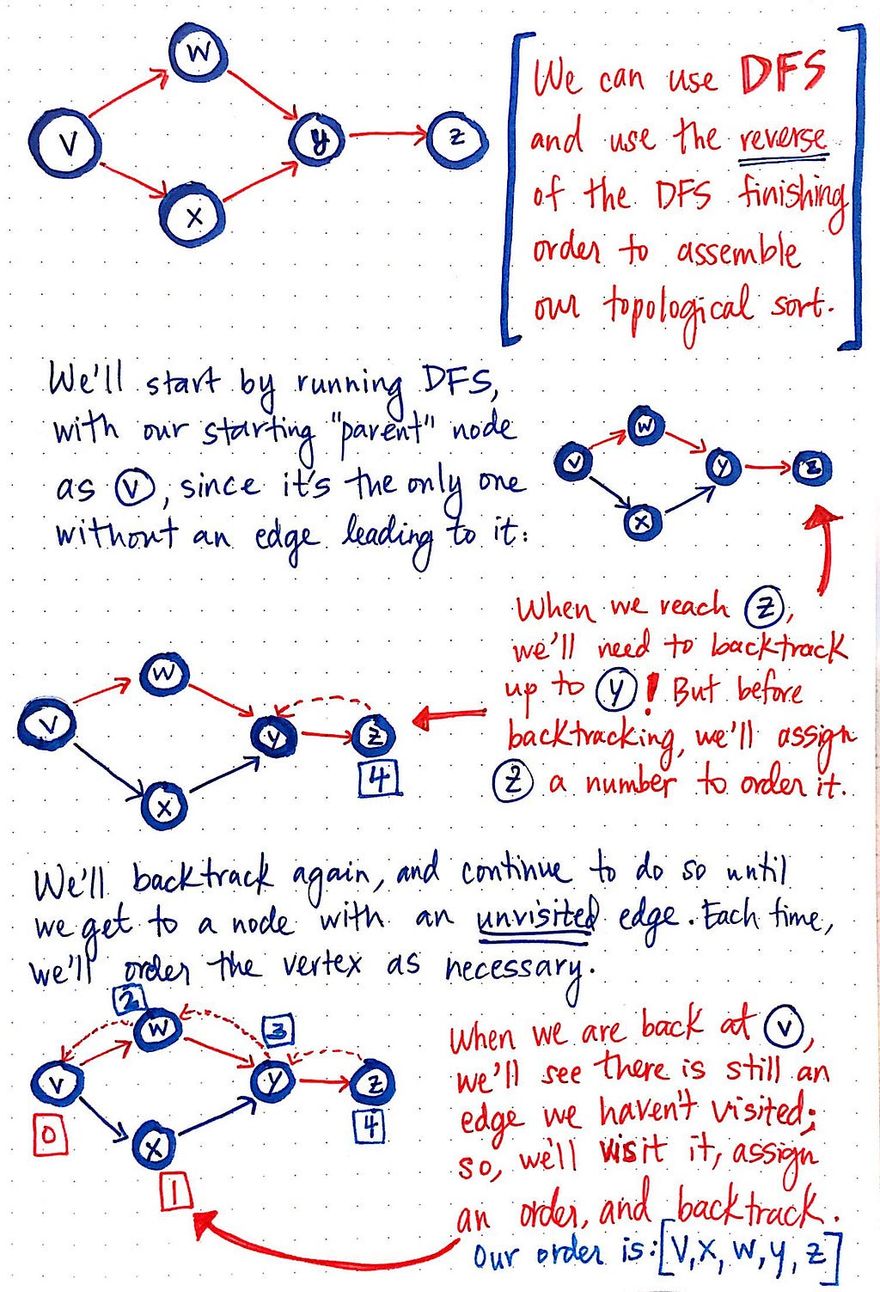 V
W
X
y
z
We can use DFS
and use the reverse
of the DFS finishing
order to assemble
our topological sort.
We'll start by running DFS,
with our starting "parent" node
as V, since it's the only one
without an edge leading to it:
V
W
X
y
z
When we reach z,
we'll need to backtrack
up to y! But before
backtracking, we'll assign
z a number to order it.
V
W
X
y
z
4
We'll backtrack again, and continue to do so until
we get to a node with an unvisited edge. Each time,
we'll order the vertex as necessary.
2
W
3
V
y
z
0
X
4
1
When we are back at V,
we'll see there is still an
edge we haven't visited;
so, we'll visit it, assign
an order, and backtrack.
Our order is: [V, X, W, y, z]